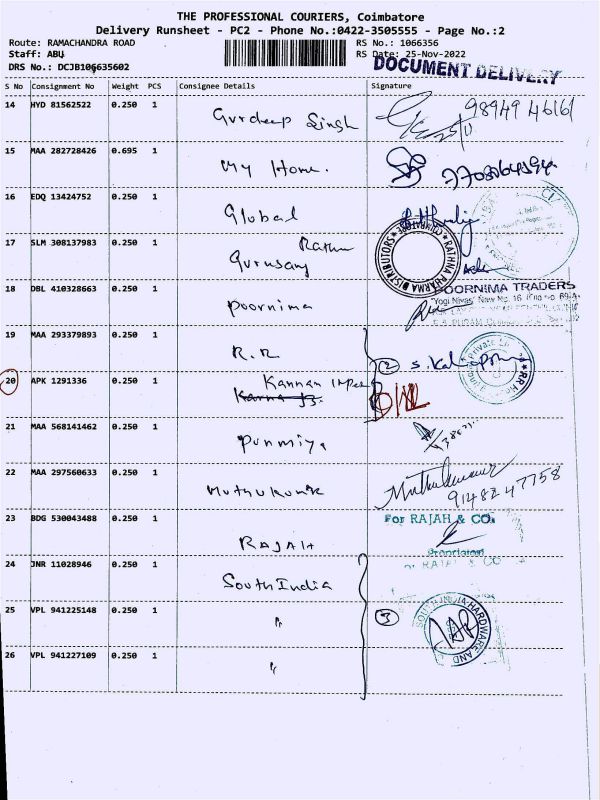 THE PROFESSIONAL COURIERS, Coimbatore
Delivery Runsheet - PC2 - Phone No.:0422-3505555 - Page No.:2
Route: RAMACHANDRA ROAD RS No.: 1066356
Staff: ABU RS Date: 25-Nov-2022
DRS No.: DCJB106635602 DOCUMENT DELIVERY
S No Consignment No Weight PCS Consignee Details Signature
14 HYD 81562522 0.250 1 Gurdeep Singh 98949 46161
15 MAA 282728426 0.695 1 My Home.
16 EDQ 13424752 0.250 1 Global
17 SLM 308137983 0.250 1 Rathna Gurusamy
RATHNA PHARMA DISTRIBUTORS COIMBATORE
18 DBL 410328663 0.250 1 Poornima POORNIMA TRADERS
"Yogi Nivas" New No. 16
19 MAA 293379893 0.250 1 R.R 2
20 APK 1291336 0.250 1 Kannan
21 MAA 568141462 0.250 1 Punmiya
22 MAA 297560633 0.250 1 Muthukumar Muthukumar
9148247758
23 BDG 530043488 0.250 1 RAJAH For RAJAH & CO.
Proprietor
24 JNR 11028946 0.250 1 South India
25 VPL 941225148 0.250 1 " 3
SOUTH INDIA HARDWARE AND
26 VPL 941227109 0.250 1 "